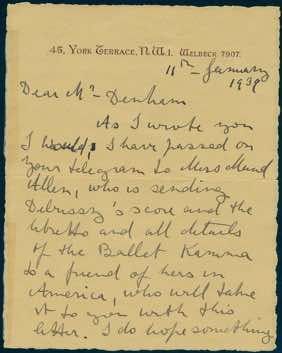 45, York Terrace, N.W.1. Welbeck 7907.
11th January
1939
Dear Mr Denham
As I wrote you
I would, I have passed on
your telegram to Miss Maud
Allen, who is sending
Debussy's score and the
libretto and all details
of the Ballet Kamma
to a friend of hers in
America, who will take
it to you with this
letter. I do hope something